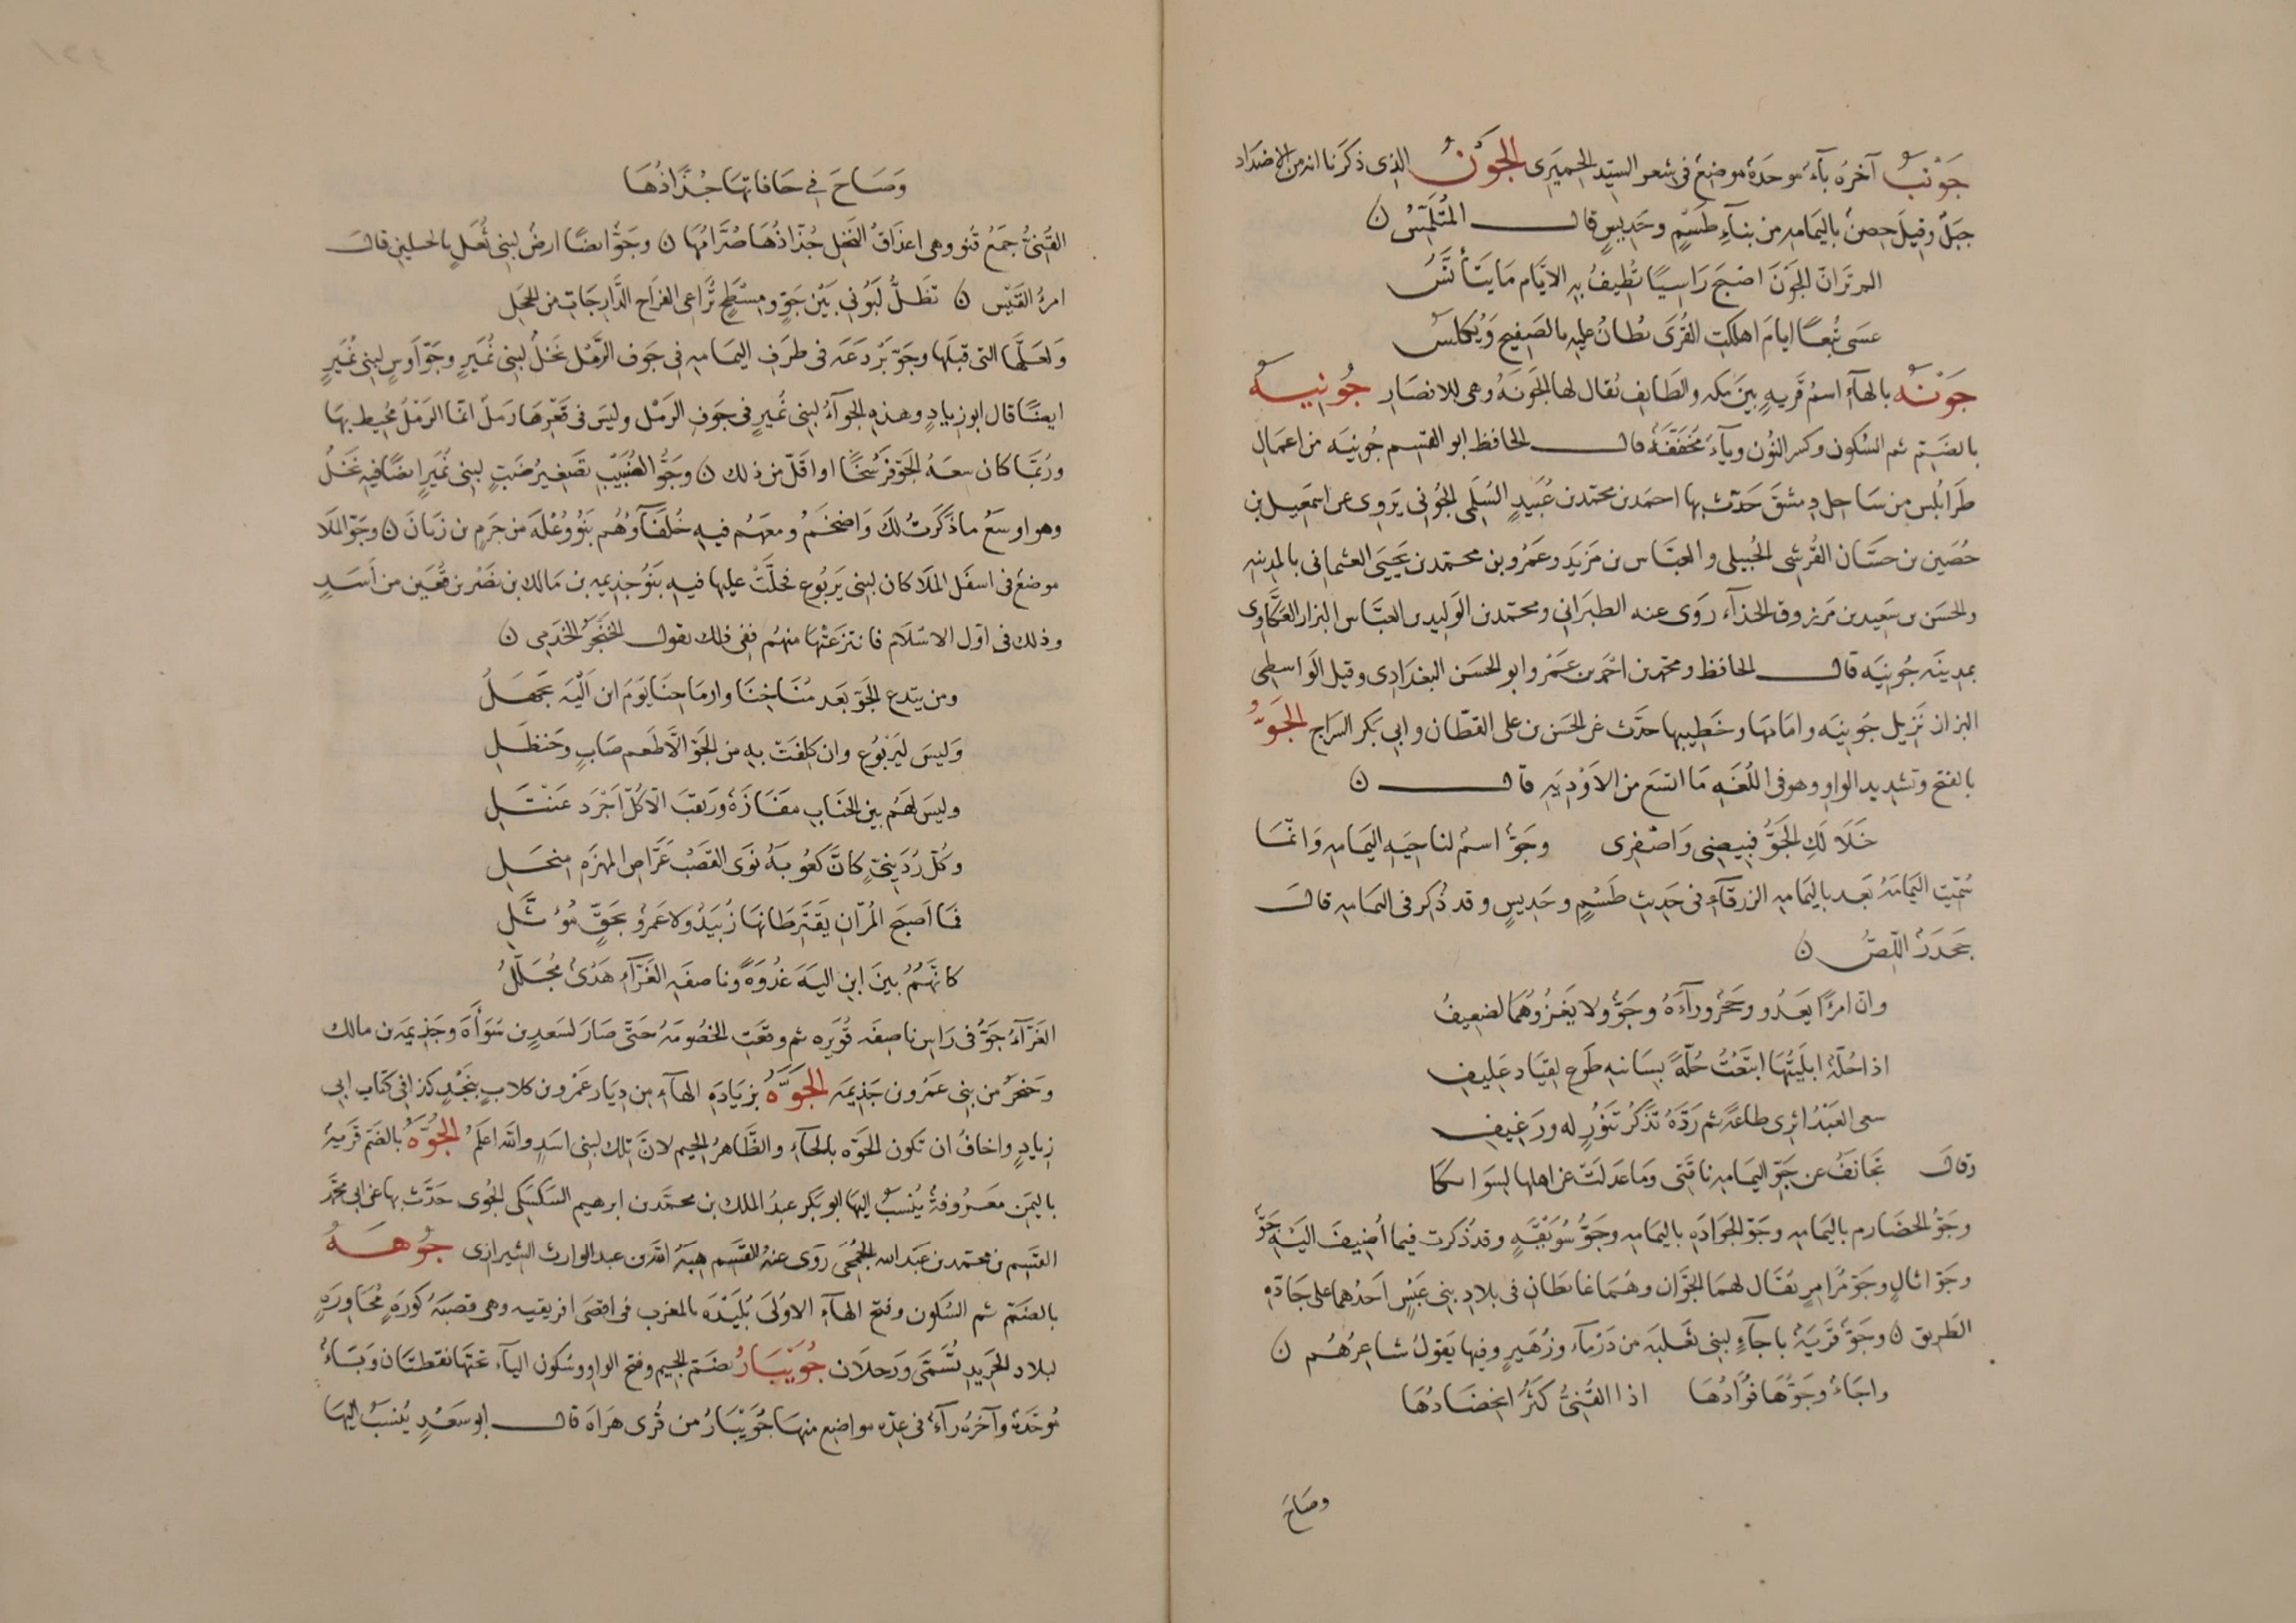 جَوْنَبُ آخرُه بآءٌ موحَدةٌ موضِعٌ في شعر السيّد الحِميَرى الجَوْنُ الذى ذكَرنا انه من الاضدَاد
جبَلٌ وقيلَ حِصنٌ باليَمامه من بنآءِ طَسْمٍ وجَدِيسٍ قال المُتَلَمِّسُ ن
الم ترَ انّ الجَوْنَ اصْبَحَ رَاسِيًا تُطِيفُ به الايَّام مَا يَتَأَنَّسُ
عسَى تُبعًا ايامَ اهلكتِ القُرَى يطانُ عليه بالصَفِيح وَيُكلَسُ
جَوْنَه بالهآءِ اسمُ قَريهٍ بينَ مكه والطَائِف يُقال لها الجَونَه وهى للانصَارِ جُونِيه
بالضَّمِّ ثم السُكون وكسر النُون ويآءٍ مُخفَّفَةٌ قال الحافظ ابو القسِم جُونيَه من اعمَالِ
طَرَابُلس مِن سَاحِل دِمشقَ حَدّث بها احمَد بن محمّد بن عُبَيدٍ السُلَمى الجُونى يَروِى عن اسمَعِيل بن
حُصَين بن حسَّان القُرشى الجُبيلى والعبَّاس بن مَزيَد وعَمرُو بن محمّد بن يَحيَى العثمانى بالمدينهِ
والحسَن بن سَعِيد بن مَرزوق الحذآء رَوى عنه الطبَرَانى ومحمّد بن الوَلِيد بن العبَّاس البزار العَكَّاوى
بمدِينَه جُونيَه قال الحافظ ومحمّد بن احمَد بن عَمْرو ابو الحسَن البغدَادِى وقيل الوَاسِطى
البزاز نَزِيل جُونيَه وامَامهَا وخَطِيبها حدَّث عن الحسَن بن على القطّان وابى بَكر السَراج الجَوُّ
بالفتح وتشدِيد الواوِ وهو فى اللُغَهِ مَا اتّسَع من الاَودِيَهِ قال ن
خَلَا لَكِ الجَوُّ فبِيضِى وَاصْفِرى وجَوٌّ اسم لناحِيَهِ اليَمامهِ وَانّمَا
سُمّيت اليَمامَهُ بَعد باليَمامهِ الزرقآءِ فى حَدِيثِ طَسْمٍ وجَدِيسٍ وقد ذُكِر فى اليمامهِ قالَ
جَحدَرٌ اللِّصُّ ن
وانّ امرَءًا يَعدُو وحَجْرٌ ورآءَهُ وجَوٌّ ولا يَغزُوهُمَا لضعِيفُ
اذا حُلّةٌ ابلَيتُهَا ابتَعْتُ حُلّةً بسَانيهِ طَوعِ القِيَاد عَلِيفِ
سعى العَبْدُ اثرى طاعَةً ثم رَدّهُ تذَكّرُ تَنّورٍ له ورَغِيفِ
وقال تَجانَفُ عن جَوِّ اليَمامهِ ناقَتى ومَا عدلَت عن اهلِها لِسَوائِكَا
وجَوُّ الخضَارم باليَمامهِ وجَوّ الجَوَادَهِ باليَمامهِ وجَوُّ سُوَيْقَهٍ وقد ذُكرت فيما اُضِيفَ اليْهِ جَوّ
وجَوّ اثالٍ وجَوّ مُرامِرٍ يُقَال لهمَا الجَوّان وهُمَا غائِطَانِ فى بلادِ بنى عَبْسٍ احَدُهما على جَادّهِ
الطَرِيق ن وجَوٌّ قَريَةٌ باجآءٍ لبنى ثعَلبَه من دَرمآء وزُهَيرٍ وفيها يَقولُ شاعِرُهُم ن
واجَاءٌ وجَوُّهَا فُؤَادُهَا اذا القُنِىُّ كَثُرَ انخِضَادُهَا
وصَاحَ
وَصَاحَ فِى حَافَاتِهَا جُذَّاذُهَا
القُنِىُّ جمَعُ قنو وهى اعذَاقُ النخَل جُذّاذُهَا صُرَّامُهَا ن وجَوٌّ ايضًا ارضٌ لبنى ثُعَلٍ بالجبلين قالَ
امرؤ القَيْس ن تظَلُّ لَبُونى بَيْن جَوٍّ ومِسْطَحٍ تُراعى الفرَاخَ الدَّارِجَاتِ من الحجَلِ
وَلعَلّها التى قبلَها وجَوّ بَرْدَعَه فى طرَفِ اليمَامهِ فى جَوف الرَّمْل نخلٌ لبنى نُمَيرٍ وجَوّ اَوسٍ لبنى نُمَيرٍ
ايضًا قال ابو زيادٍ وهذهِ الجوآءُ لبنى نُميرٍ فى جَوفِ الرَمْل وليسَ فى قَعْرِهَا رَملٌ انّما الرَمْلُ مُحِيط بهَا
ورُبّمَا كان سِعَهُ الجَوّ فَرْسَخًا او اقَلّ من ذلك ن وجَوُّ الضُبَيْبِ تصغِيرُ ضَبٍّ لبنى نُمَيرٍ ايضًا فيه نخَلٌ
وهو اوسَعُ ما ذَكَرَتُ لكَ وَاضخَمُ ومعهَم فيهِ حُلفَآوُهُم بَنُو وُعْلَهَ من جَرمِ بن زبّانَ ن وجَوّ المَلَا
موضعٌ فى اسفَل المَلَا كان لبنى يَربُوع فحلّتْ عليها فيهِ بَنُو جذِيمه بن مَالك بن نصْر بن قُعَين من أَسَدٍ
وذلك فى اوّل الاسْلَام فانتزعَتْهَا منهُم ففى ذلك يقول الخَنجَرُ الجذَمِى ن
ومن يتدع الجَوّ بعَد مُنَاخِنَا وارمَاحِنَا يَومَ ابن اَليّه تجهَلُ
وَليسَ ليَربُوع وان كلِفَتْ بهِ من الجَوّ الّا طَعم صَابٍ وحَنظَلِ
وليسَ لهَم بين الجنَابِ مفَازَةٌ ورَنقبَ الّا كُلّ اجْرَد عَنْتَلِ
وكُلّ رُدَينىّ كانّ كعُوبَهُ نوَى القصَبْ عَرّاصِ المهزَه مِنجَلِ
فمَا اصبَح المُرّانِ يَقتَرِطانِهَا زُبَيَدٌ ولا عَمرٌو بحَقٍّ مُوَثّلِ
كانّهُم بينَ ابنِ اليَهَ غُدْوَةً وناصفَهِ الغَرّآءِ هَدْىٌ مُجَلّلُ
الغَرّآءُ جَوٌّ فى رَاسِ ناصِفَه قُوَيره ثم وقعَتِ الخصُومَهُ حَتّى صَارَ لسَعدِ بن سُوَأَهَ وجَذِيمَه بن مالك
وخنجَرٌ من بنى عمَرو بن جَذِيمَه الجَوَّهُ بزيَادَهِ الهآءِ مِن دِيَار عَمْرو بن كلابٍ بنجَدٍ كذا فى كتاب ابى
زِيادٍ واخافُ ان تكون الحَوّه بالحآءِ والظَاهِرُ الجيم لانَّ تِلك لبنى اسَدٍ والله اعَلمُ الجُوَّهُ بالضَمّ قَريهٌ
باليَمن مَعرُوفةٌ يُنسَبُ اليهَا ابو بَكر عبدُ الملك بن محمّد بن ابرهيم السَكسَكى الجُوى حَدَّث بها عن ابى محمَّد
القسِم بن محمّد بن عَبد الله الجُمَحِى رَوى عنهُ ابو القسَم هبَهُ الله بن عبد الوارث الشيرازى جُوهَهُ
بالضَمّ ثم السُكون وفتح الهآءِ الاولَى بُلَيْدَه بالمغرب فى اقصَى افريقيه وهى قصبَهُ كورَهٍ مُجَاوِرَهٍ
لبلادِ الجَرِيدِ تُسَمَّى وَرجلَان جُوَيْبَارُ بضَمّ الجِيم وفتح الواوِ وسُكون اليآءِ تحتَها نقطتَان وَبَاءٌ
مُوحَّدةٌ وآخرُه رآءٌ فى عِدّه مواضِع منهَا جُوَيْبَارُ من قُرى هَرَاهَ قال ابو سَعْدٍ يُنسَبُ اليهَا